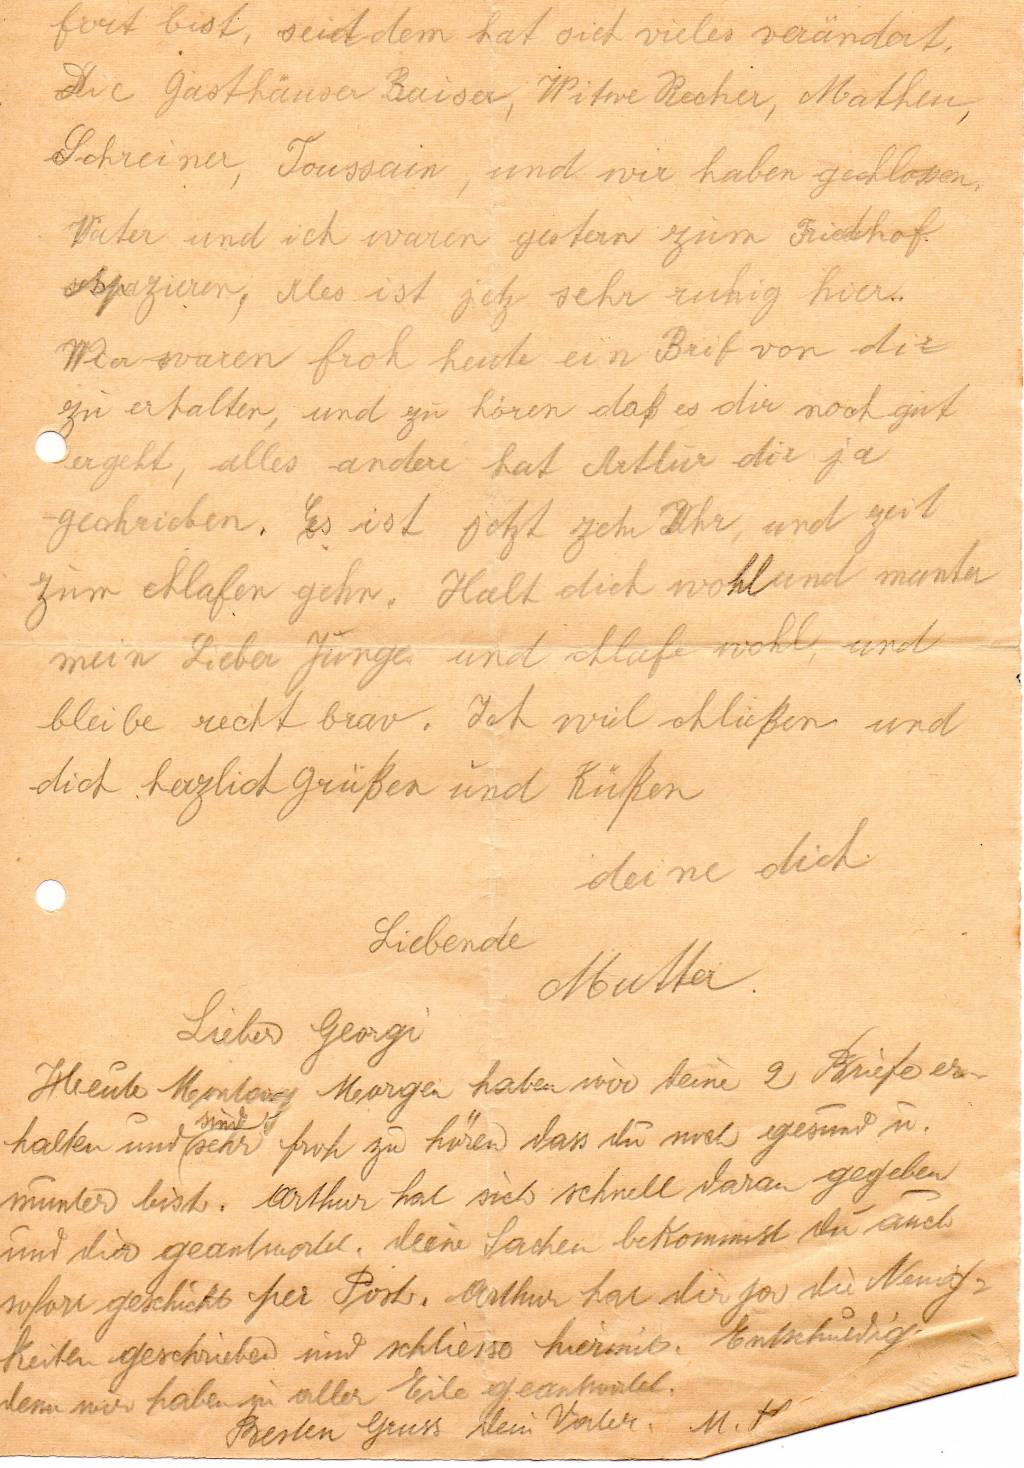 fort bist, seitdem hat sich vieles verändert.
Die Gasthäuser Kaiser, Witwe Recher, Matheu,
Schreiner, Toussain, und wir haben geschlossen.
Vater und ich waren gestern zum Friedhof
spazieren, Alles ist jetz sehr ruhig hier.
Wier waren froh heute ein Brif von dir
zu erhalten, und zu hören daß es dir noch gut
ergeht, alles andere hat Arthur dir ja
geschrieben. Es ist jetzt zehn Uhr, und zeit
zum schlafen gehn. Halt dich wohl und munter
mein Lieber Junge und schlafe wohl, und
bleibe recht brav. Ich wiel schließen und
dich herzlich Grüßen und Küßen
deine dich
Liebende
Mutter.
Lieber Georgi
Heute Montag Morgen haben wir deine 2 Briefe er-
halten und sind sehr froh zu hören dass du noch gesund u.
munter bist. Arthur hat sich schnell daran gegeben
und dir geantwortet. Deine Sachen bekommst du auch
sofort geschickt per Post. Arthur hat dir ja die Neuig-
keiten geschrieben und schliesse hiermit. Entschuldig
denn wir haben in aller Eile geantwortet.
Besten Gruss Dein Vater. M. H